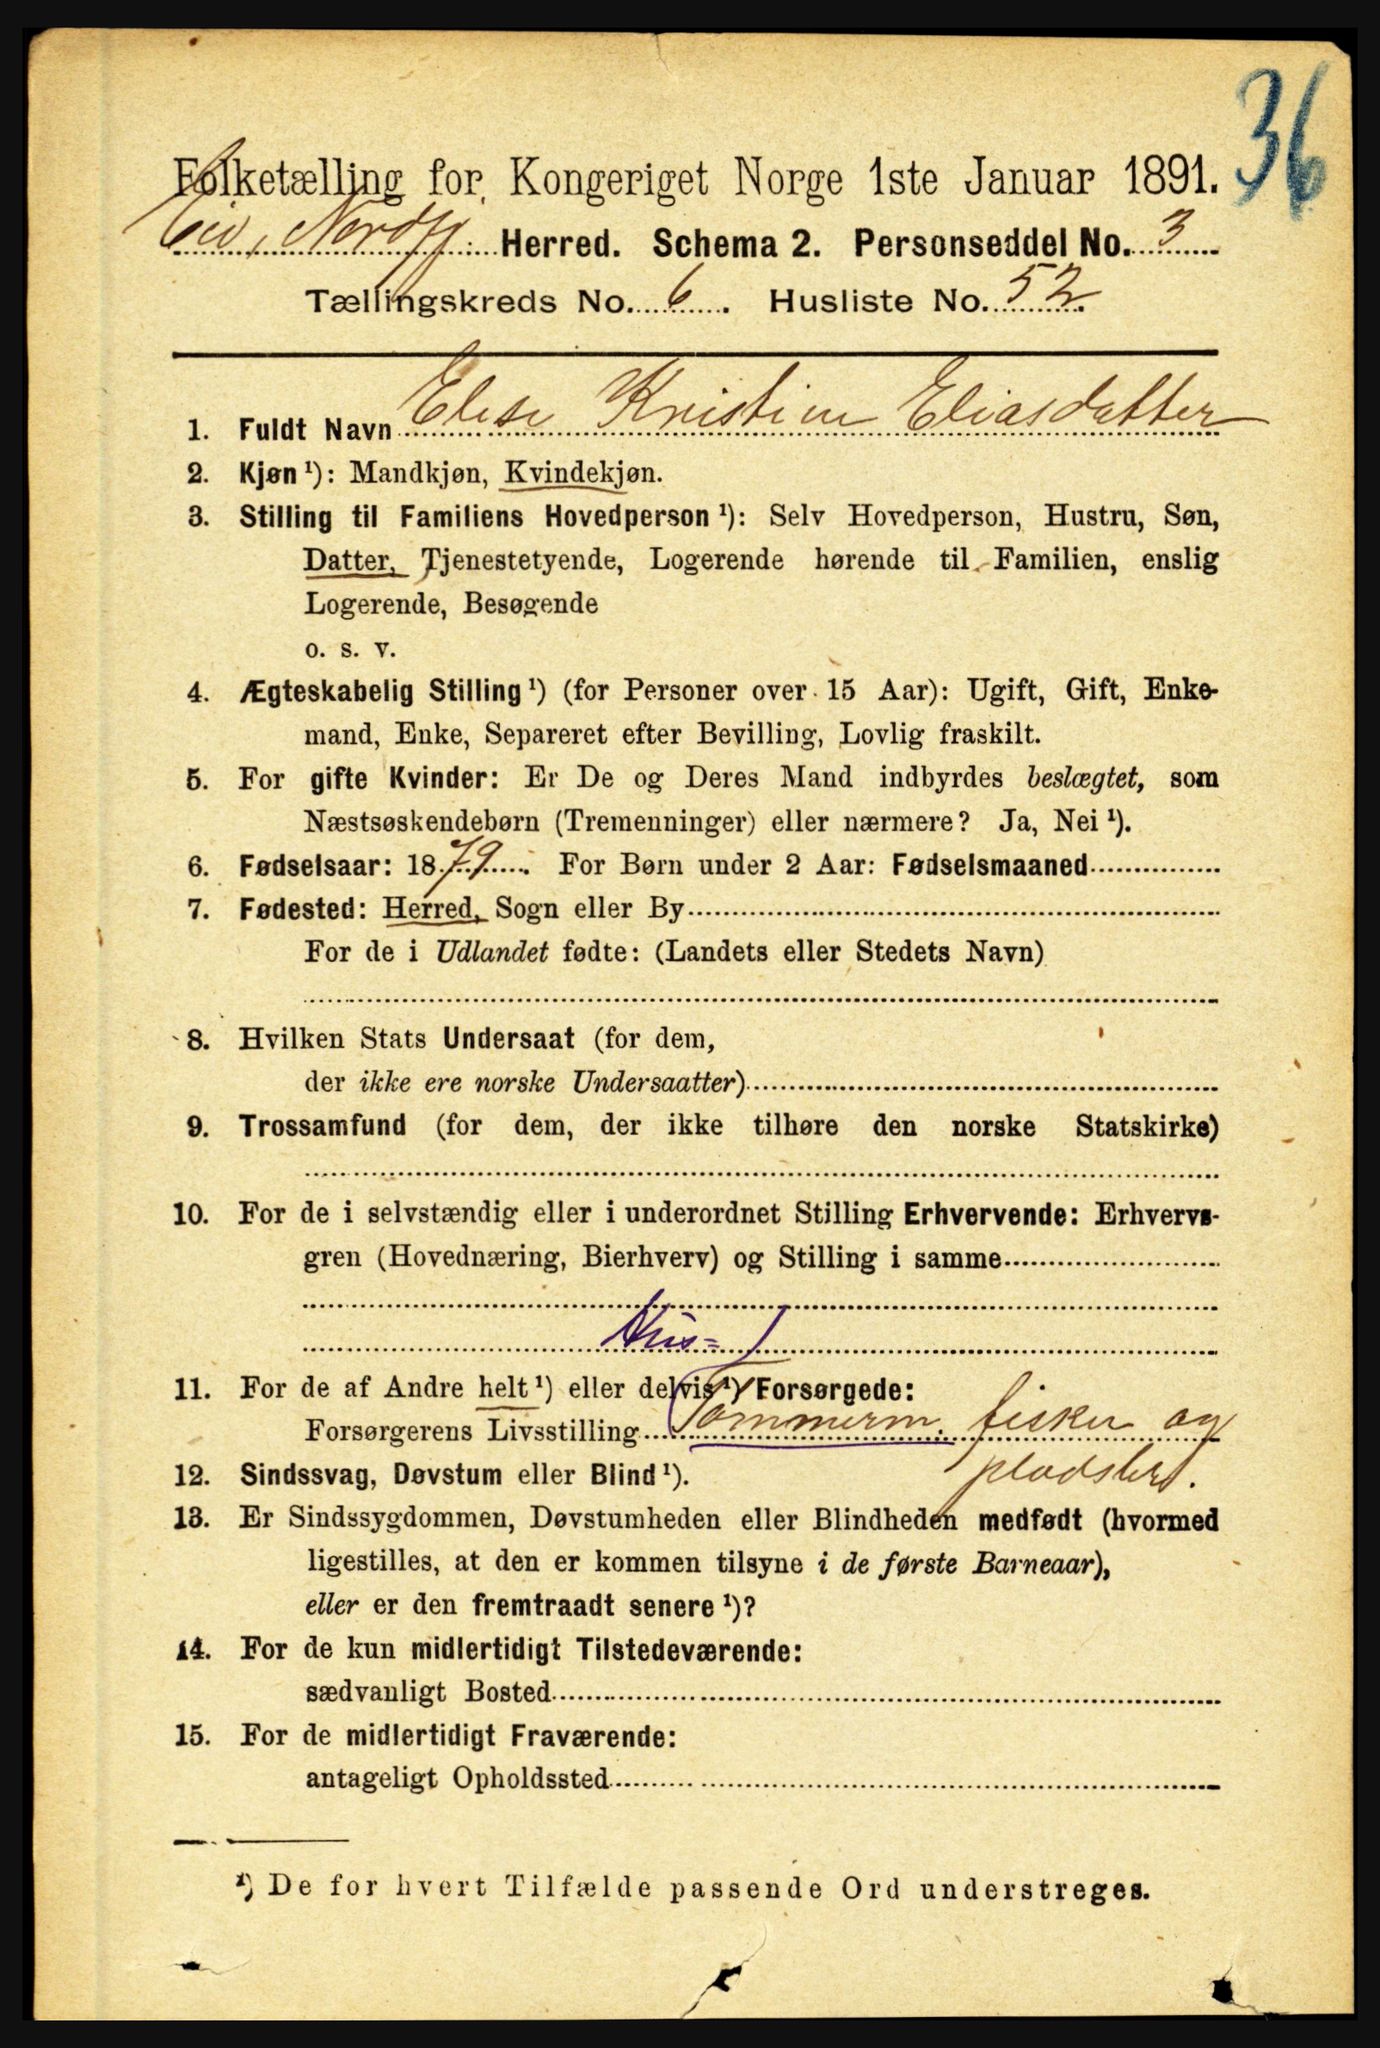 36
Folketælling for Kongeriget Norge 1ste Januar 1891.
Eid, Nordfj. Herred. Schema 2. Personseddel No. 3
Tællingskreds No. 6. Husliste No. 52.
1. Fuldt Navn Elise Kristine Eliasdatter
2. Kjøn ¹): Mandkjøn, Kvindekjøn.
3. Stilling til Familiens Hovedperson ¹): Selv Hovedperson, Hustru, Søn,
Datter, Tjenestetyende, Logerende hørende til Familien, enslig
Logerende, Besøgende
o. s. v.
4. Ægteskabelig Stilling ¹) (for Personer over 15 Aar): Ugift, Gift, Enke-
mand, Enke, Separeret efter Bevilling, Lovlig fraskilt.
5. For gifte Kvinder: Er De og Deres Mand indbyrdes beslægtet, som
Næstsøskendebørn (Tremenninger) eller nærmere? Ja, Nei ¹).
6. Fødselsaar: 1879. For Børn under 2 Aar: Fødselsmaaned
7. Fødested: Herred, Sogn eller By
For de i Udlandet fødte: (Landets eller Stedets Navn)
8. Hvilken Stats Undersaat (for dem,
der ikke ere norske Undersaatter)
9. Trossamfund (for dem, der ikke tilhøre den norske Statskirke)
10. For de i selvstændig eller i underordnet Stilling Erhvervende: Erhvervs-
gren (Hovednæring, Bierhverv) og Stilling i samme
Hus=
11. For de af Andre helt ¹) eller delvis ¹) Forsørgede:
Forsørgerens Livsstilling Tømmerm. fisker og
pladsbr.
12. Sindssvag, Døvstum eller Blind ¹).
13. Er Sindssygdommen, Døvstumheden eller Blindheden medfødt (hvormed
ligestilles, at den er kommen tilsyne i de første Barneaar),
eller er den fremtraadt senere ¹)?
14. For de kun midlertidigt Tilstedeværende:
sædvanligt Bosted
15. For de midlertidigt Fraværende:
antageligt Opholdssted
¹) De for hvert Tilfælde passende Ord understreges.